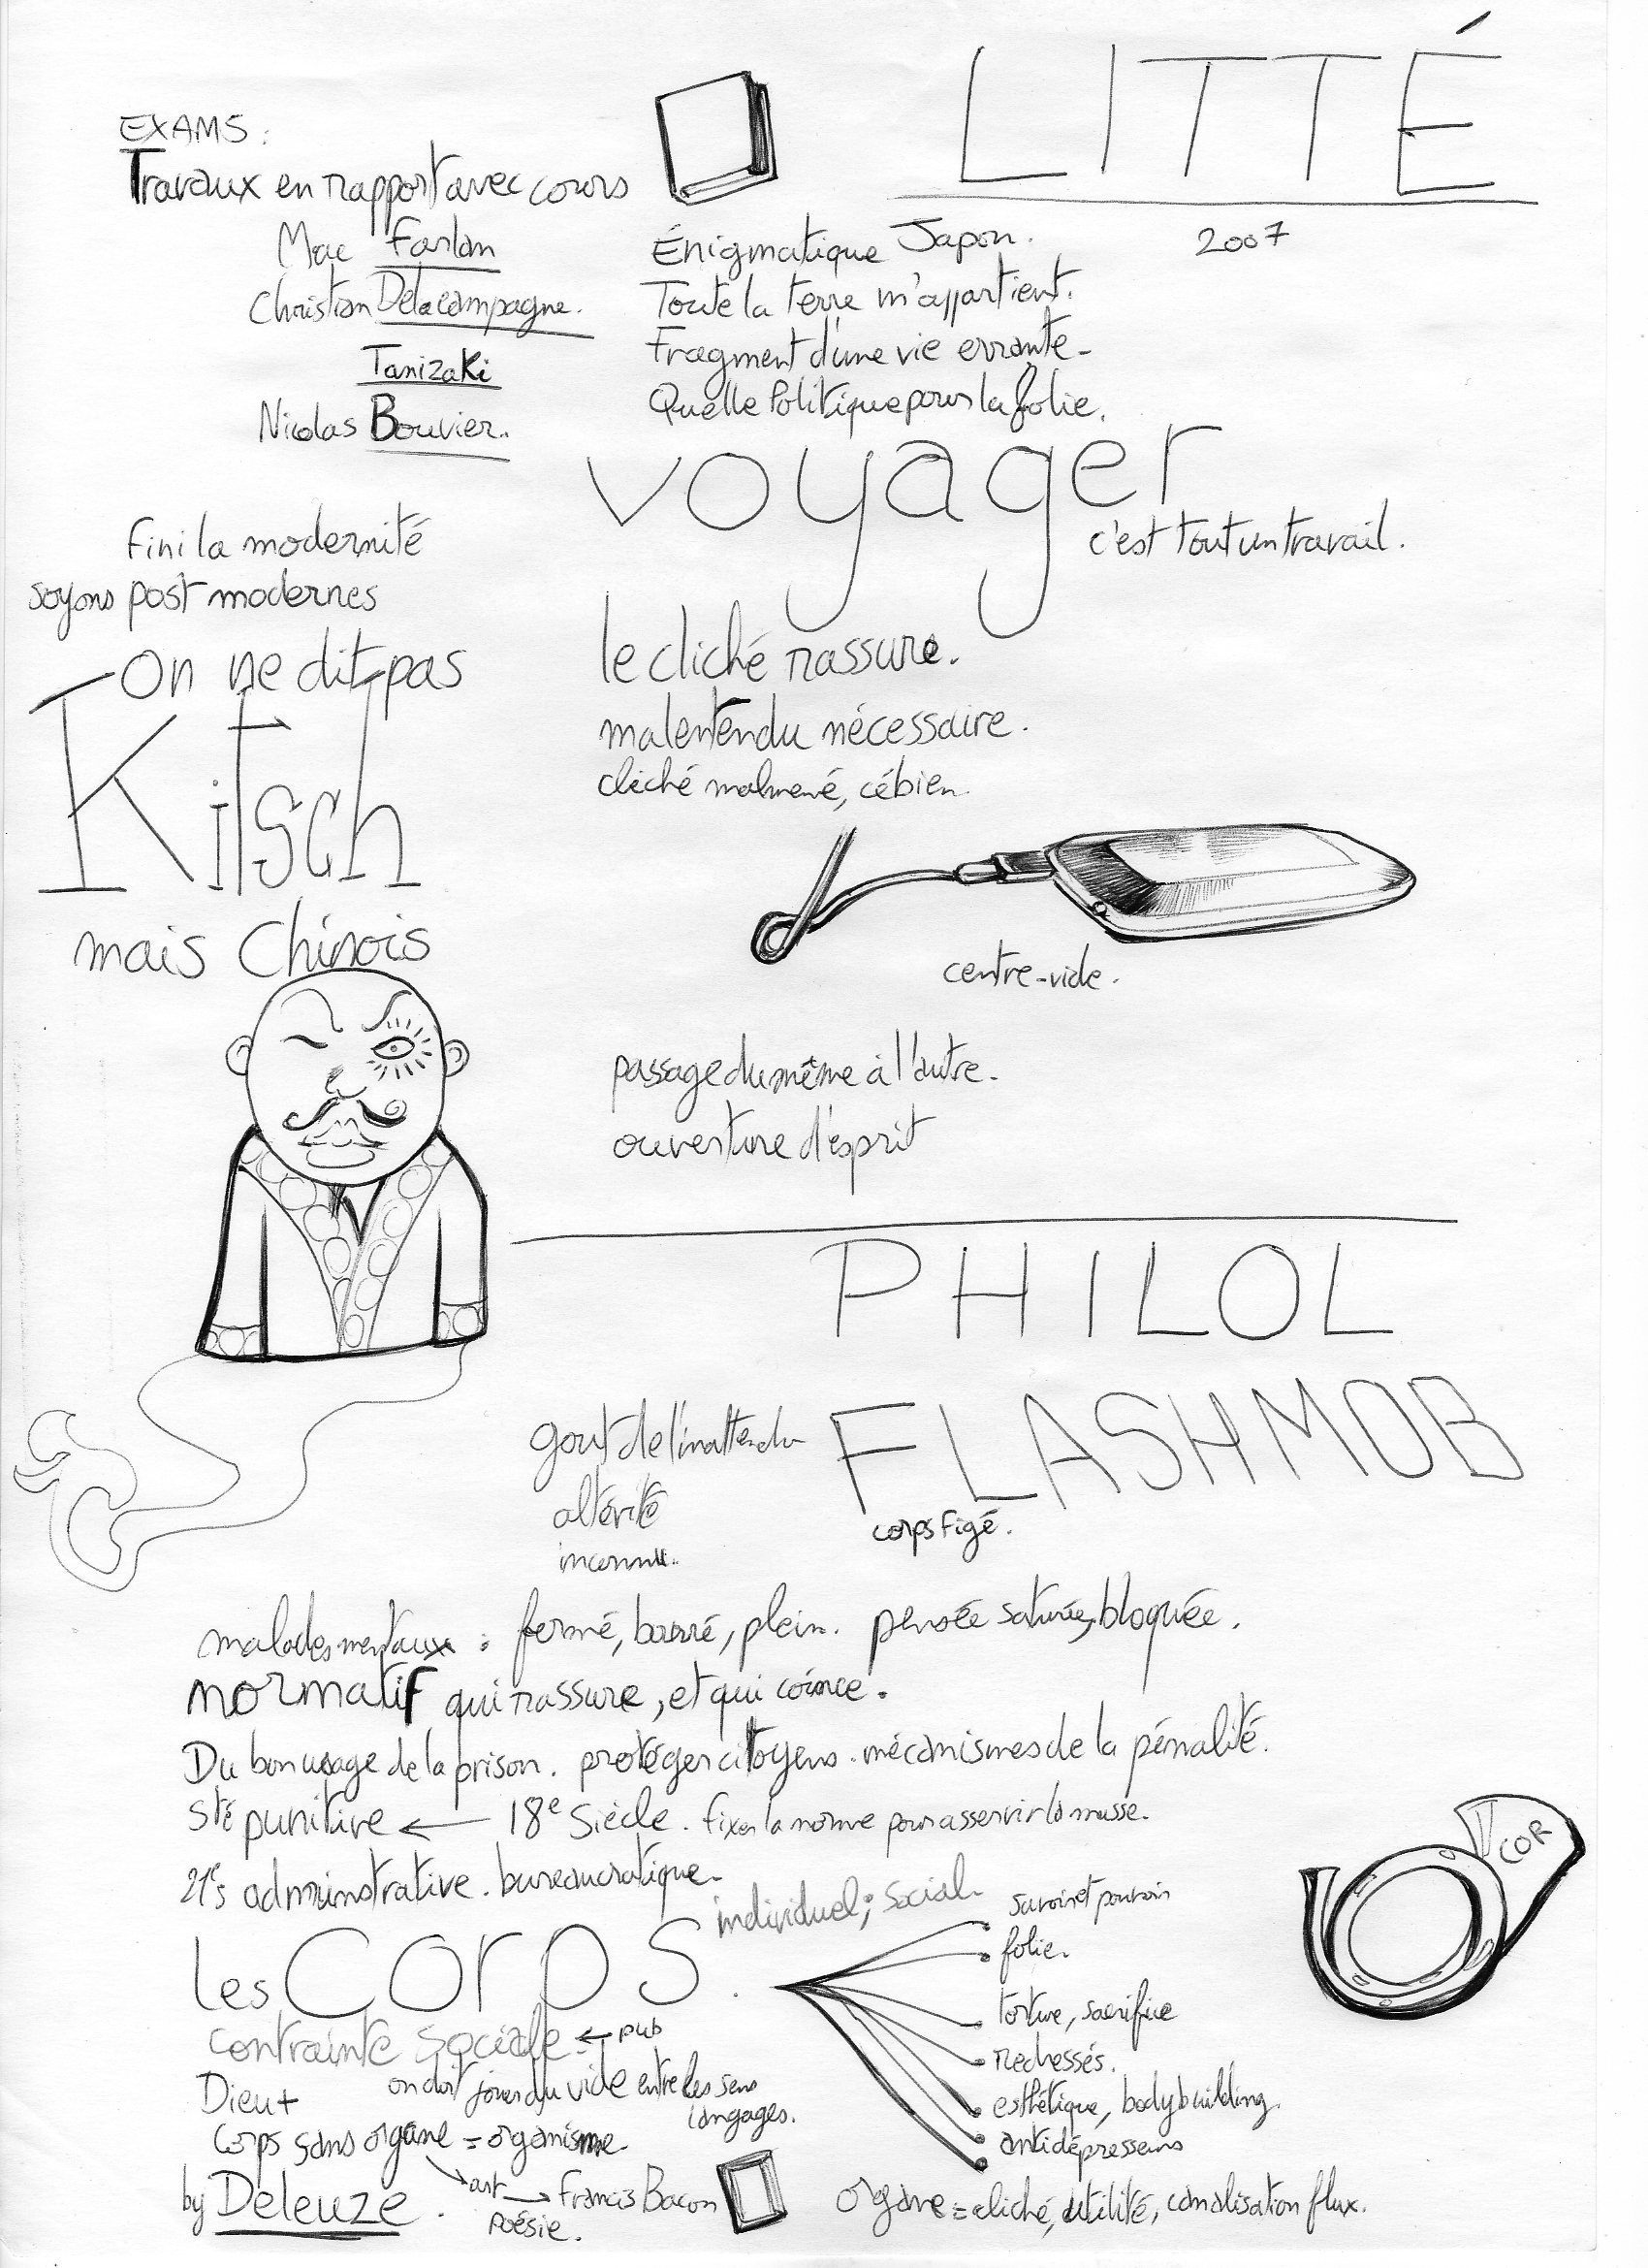 LITTÉ
2007
EXAMS :
Travaux en rapport avec cours
Mac Farlan
Christian Delacampagne.
Tanizaki
Nicolas Bouvier..
Énigmatique Japon.
Toute la terre m'appartient.
Fragment d'une vie errante-
Quelle Politique pour la folie.
voyager
c'est tout un travail.
fini la modernité
soyons post modernes
On ne dit pas
Kitsch
mais Chinois
le cliché rassure.
malentendu nécessaire.
cliché malmené, cébien.
centre-vide.
passage du même à l'autre-
ouverture d'esprit
PHILOL
FLASHMOB
corps figé.
gout de l'inattendu
altérité
inconnu..
malades mentaux : fermé, barré, plein. pensée saturée, bloquée.
normatif qui rassure, et qui coince.
Du bon usage de la prison. protéger citoyens. mécanismes de la pénalité.
Sté punitive ← 18e Siècle. fixer la norme pour asservir la masse.
21es administrative. bureaucratique-
individuel; social-
les corps.
savoir et pouvoir
folie.
torture, sacrifice
redressés.
esthétique, bodybuilding.
antidépresseurs
COR
contrainte sociale ← pub
on doit jouer du vide entre les sens
langages.
Dieu+
Corps sans organe = organisme.
by Deleuze.
art → Francis Bacon
poésie.
organe = cliché, utilité, canalisation flux.